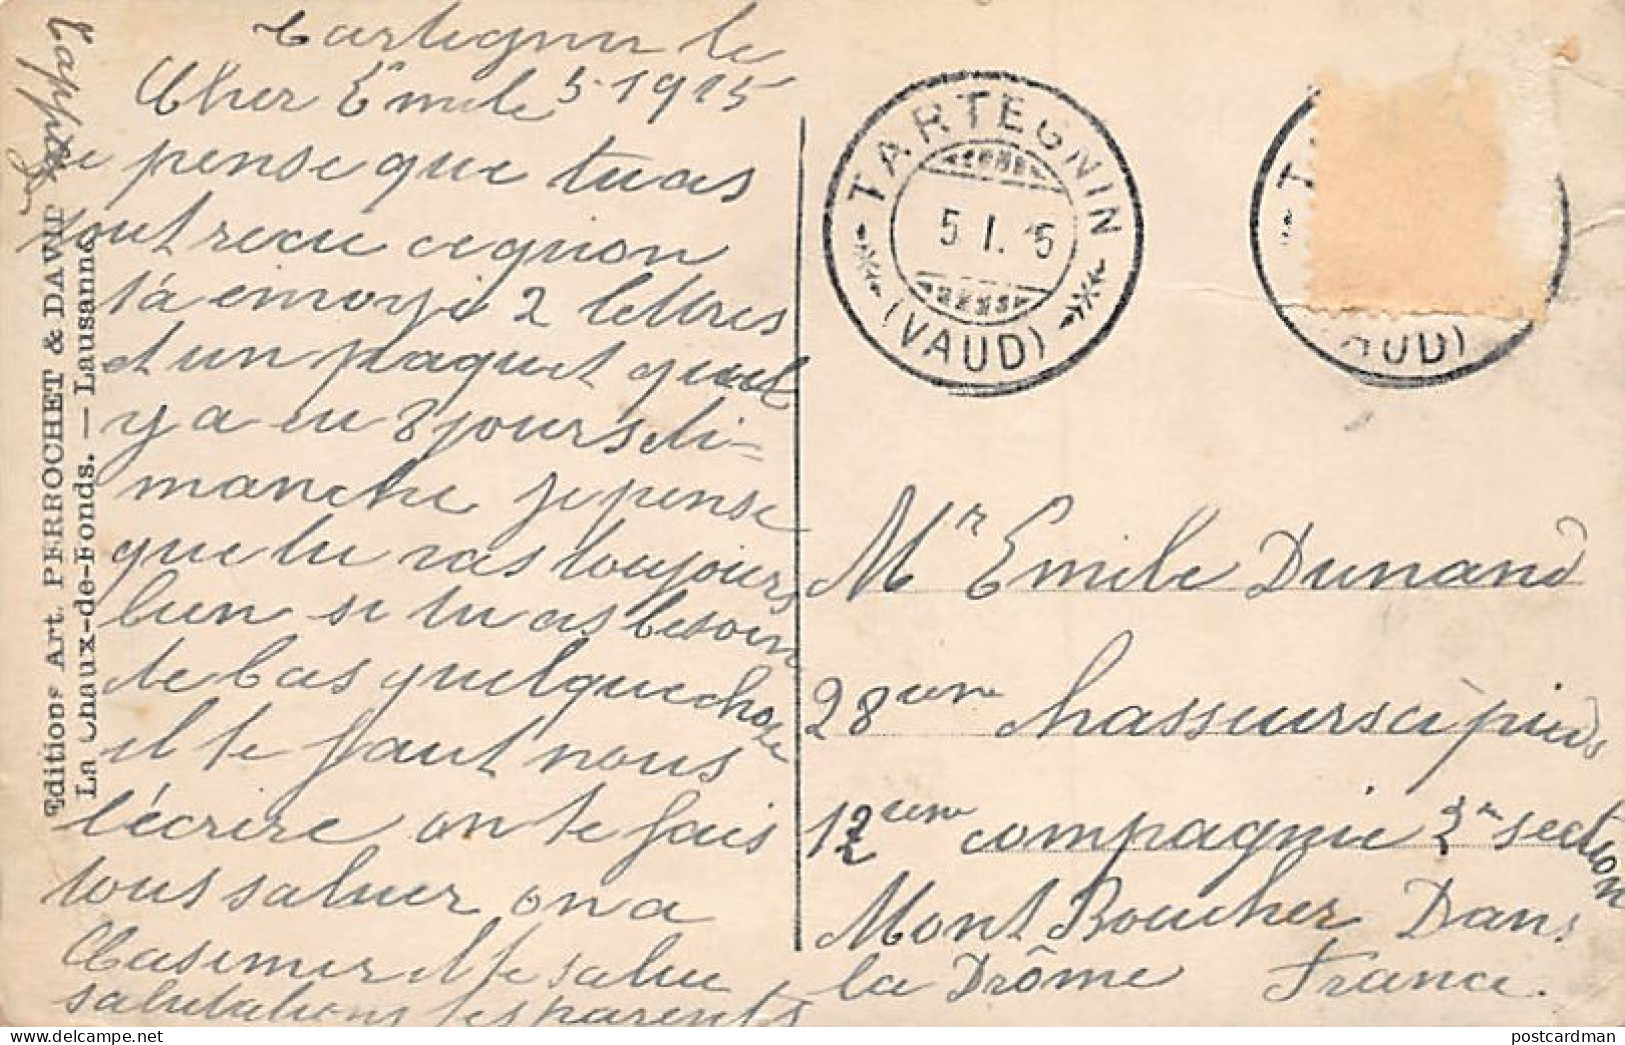 Tartegnin le
5 1915
Cher Emile
je pense que tu as
tout recu ce qu'on
t'a envoyé 2 lettres
et un paquet qu'il
y a eu 8 jours di-
manche je pense
que tu vas toujours
bien si tu as besoin
de bas quelque chose
il te faut nous
l'écrire on te fais
tous saluer on a
Casimer il te salue
salutations tes parents
Editions Art. PERROCHET & DAVID
La Chaux-de-Fonds. — Lausanne
TARTEGNIN
5 I. 15
(VAUD)
T
AUD)
Mr Emile Dunand
28 eme chasseurs à pieds
12 eme compagnie 2me section
Mont Boucher Dans
la Drôme France.
postcardman